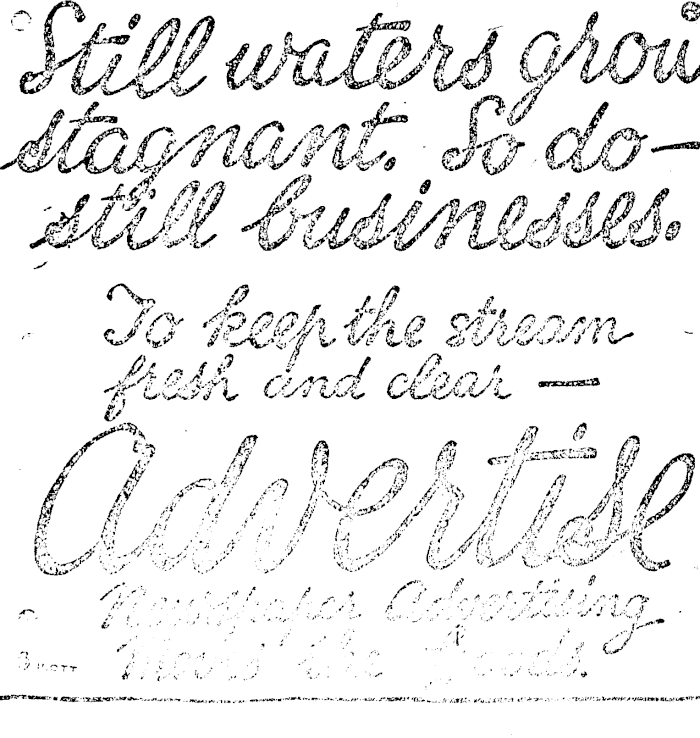 Still waters grow
stagnant. So do—
still businesses.
To keep the stream
fresh and clear—
Advertise
Newspaper Advertising
Moves the Goods.